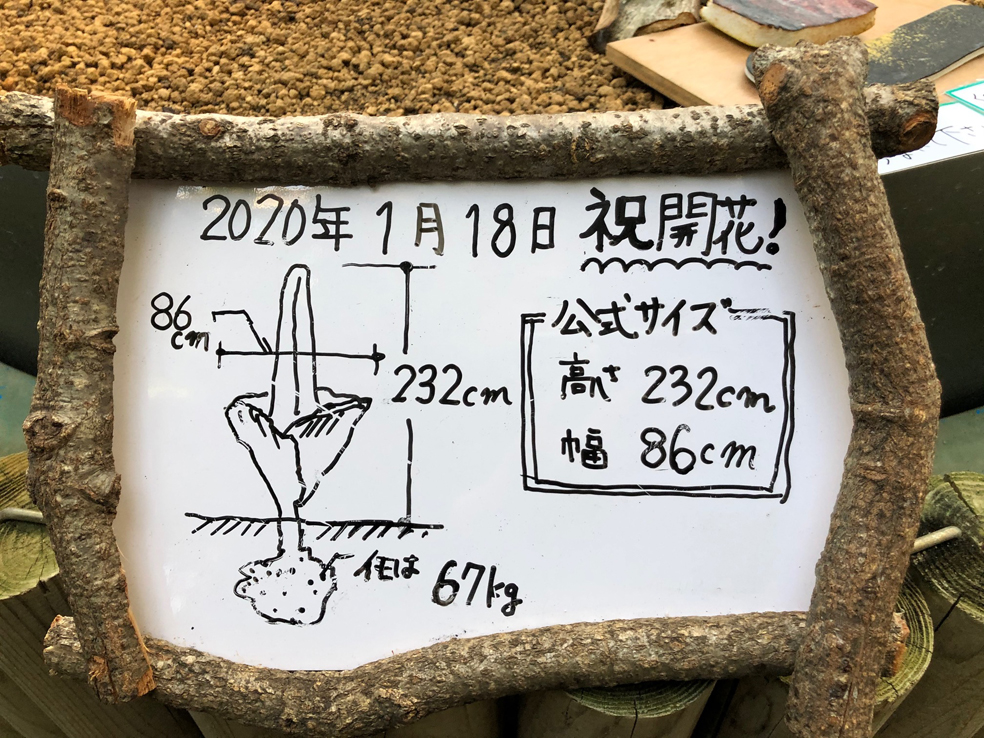 2020年1月18日 祝開花!
86
cm
232cm
公式サイズ
高さ 232cm
幅 86cm
イモは 67kg